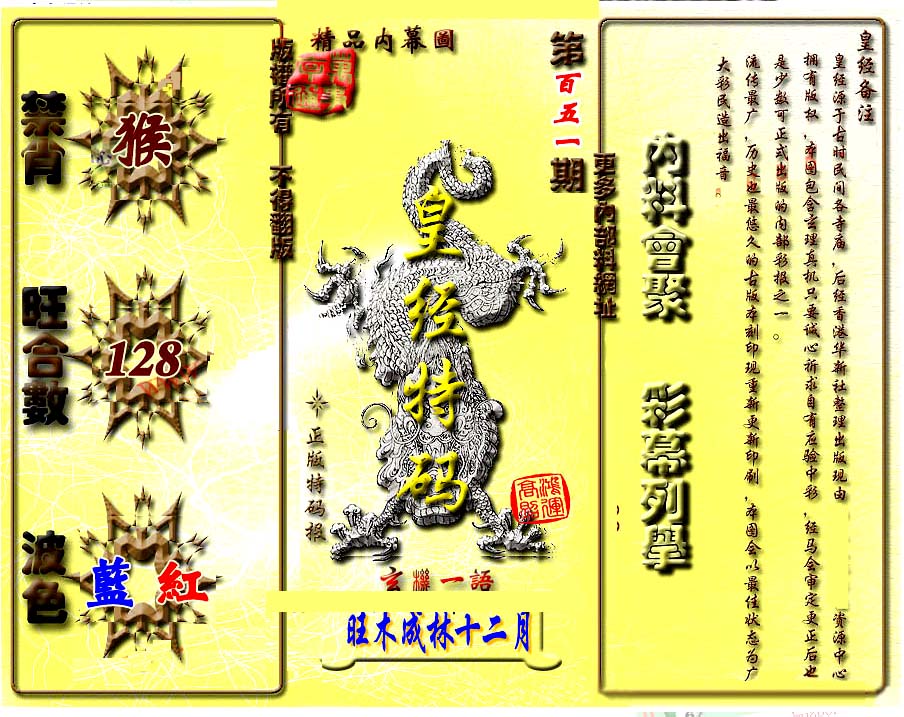 皇经备注
皇经源于古时民间各寺庙，后经香港华新社整理出版现由 资源中心
拥有版权，本图包含玄理真机只要诚心祈求自有应验中彩，经马会审定更正后也
是少数可正式出版的内部彩报之一。
流传最广，历史也最悠久的古版本刻印现重新更新印刷，本图会以最佳状态为广
大彩民造出福音
內料會聚 彩幕列舉
更多內部料網址
第百五一期
精品內幕圖
版權所有 不得翻版
皇经特码
正版特码报
鴻運高照
玄機一語
旺木成林十二月
禁肖
猴
旺合數
128
波色
藍 紅